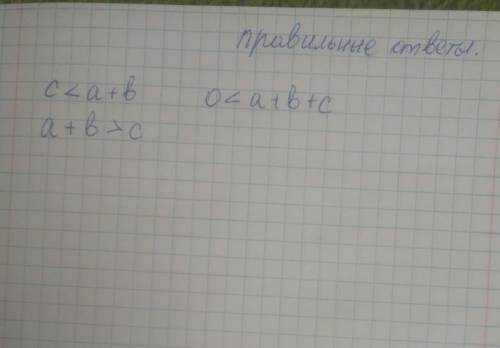 правильные ответы.
c < a + b 0 < a + b + c
a + b > c